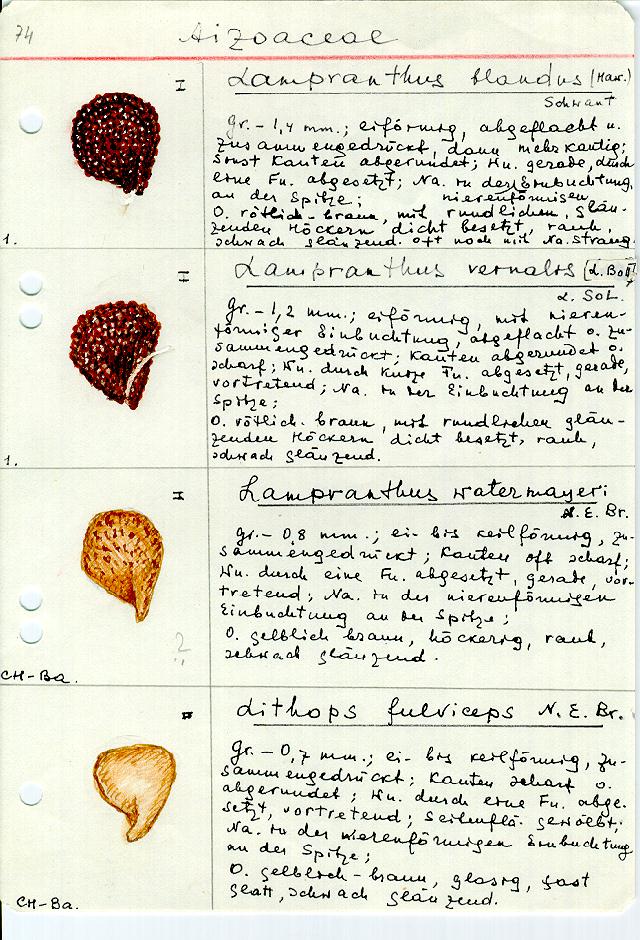 74
Aizoaceae
I
Lampranthus blandus (Haw.)
Schwant
gr. – 1,4 mm.; eiförmig, abgeflacht u.
zusammengedrückt, dann mehrkantig;
sonst Kanten abgerundet; Hu. gerade, durch
eine Fu. abgesetzt; Na. in der Einbuchtung,
an der Spitze; nierenförmigen
O. rötlich-braun, mit rundlichen, glän-
zenden Höckern dicht besetzt, rauh,
schwach glänzend. oft noch mit Na. strang
1.
I
Lampranthus vernalis (L. Bol
L. Bol.
gr. – 1,2 mm.; eiförmig, mit nieren-
förmiger Einbuchtung, abgeflacht o. zu-
sammengedrückt; Kanten abgerundet o.
scharf; Hu. durch kurze Fu. abgesetzt, gerade,
vortretend; Na. in der Einbuchtung an der
Spitze;
O. rötlich-braun, mit rundlichen glän-
zenden Höckern dicht besetzt, rauh,
schwach glänzend.
1.
I
Lampranthus watermayeri
N. E. Br.
gr. – 0,8 mm.; ei- bis keilförmig, zu-
sammengedrückt; Kanten oft scharf;
Hu. durch eine Fu. abgesetzt, gerade, vor-
tretend; Na. in der nierenförmigen
Einbuchtung an der Spitze;
O. gelblich braun, höckerig, rauh,
schwach glänzend.
?
CH-Ba.
Lithops fulviceps N. E. Br.
gr. – 0,7 mm.; ei- bis keilförmig, zu-
sammengedrückt; Kanten scharf o.
abgerundet; Hu. durch eine Fu. abge-
setzt, vortretend; Seitenflä. gewölbt;
Na. in der nierenförmigen Einbuchtung
an der Spitze;
O. gelblich-braun, glasig, fast
glatt, schwach glänzend.
CH-Ba.